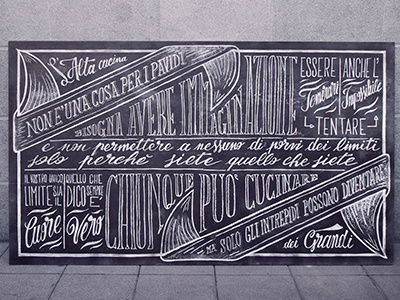 L'Alta cucina
NON È UNA COSA PER I PAVIDI
BISOGNA AVERE IMMAGINAZIONE
ESSERE
Temerari
ANCHE L'
Impossibile
TENTARE
e non permettere a nessuno di porvi dei limiti
solo perché siete quello che siete
IL VOSTRO UNICO
LIMITE SIA IL
Cuore
QUELLO CHE
DICO SEMPRE
È
Vero
CHIUNQUE PUÒ CUCINARE
MA SOLO GLI INTREPIDI POSSONO DIVENTARE
dei Grandi